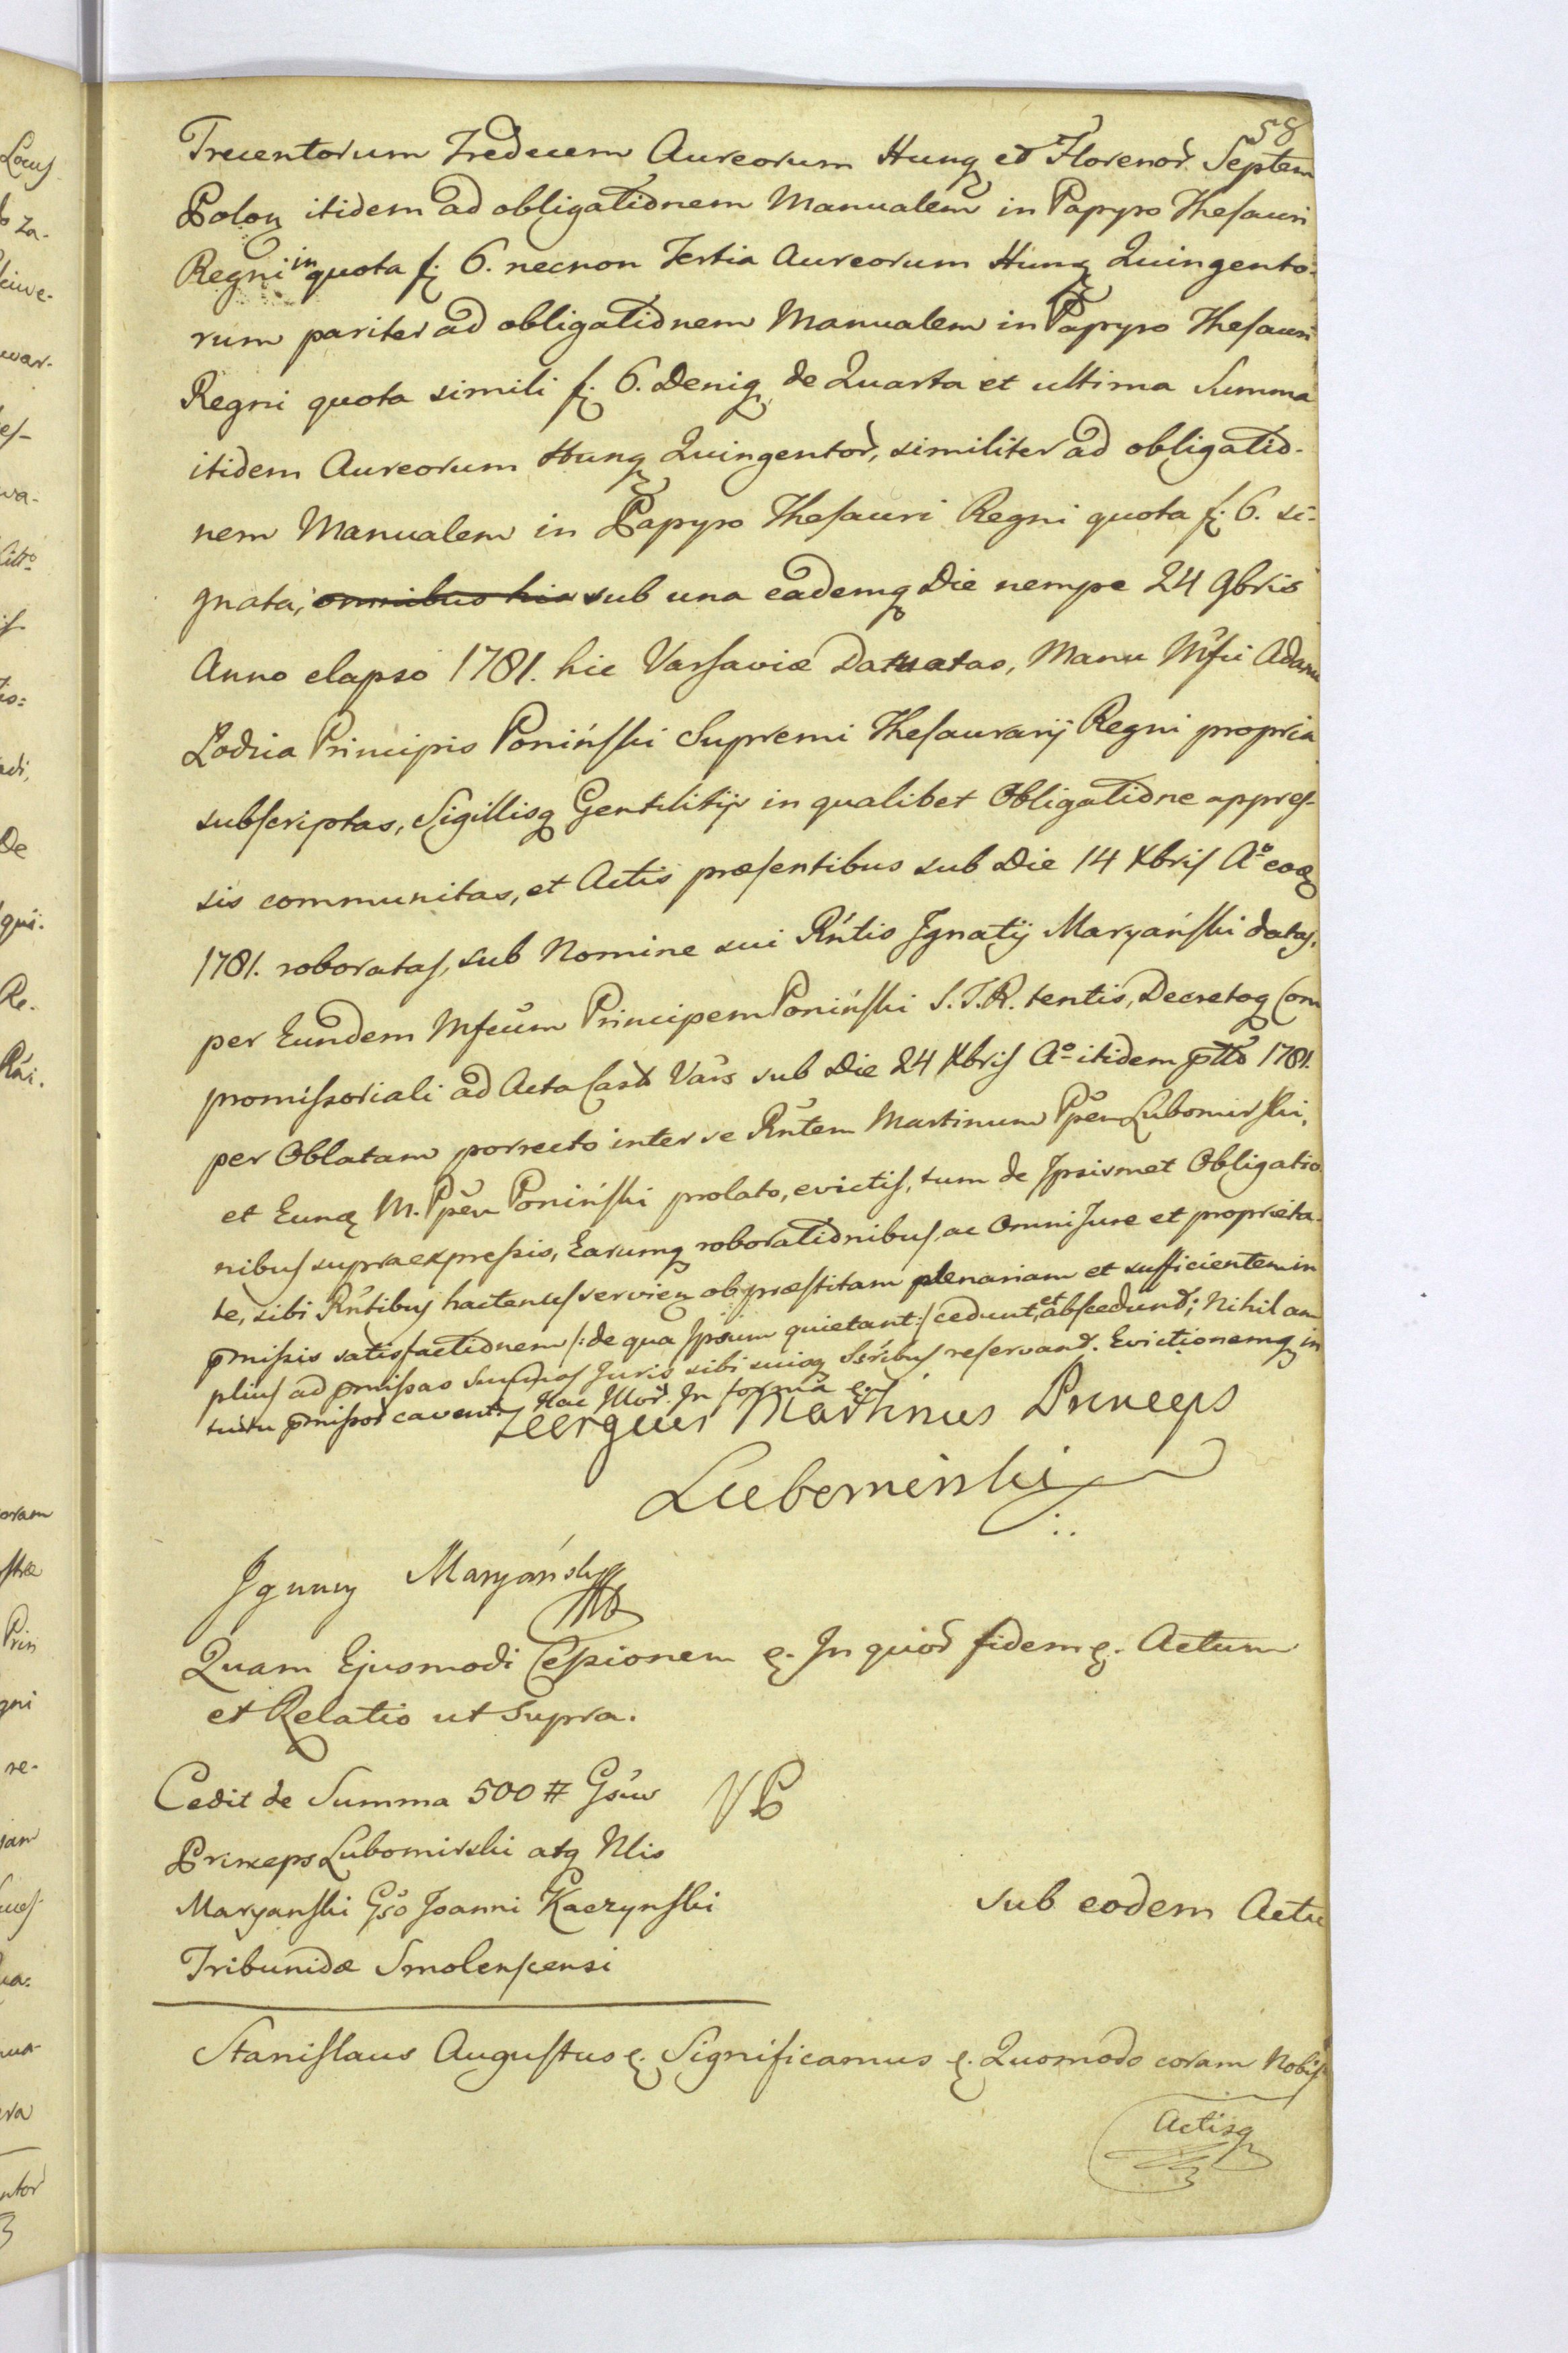 58
Trecentorum Tredecem Aureorum Hung et Florenor. Septem
Polon itidem ad obligationem Manualem in Papyro Thesauri
Regni in quota f. 6. necnon Tertia Aureorum Hung Quingento-
rum pariter ad obligationem Manualem in Papyro Thesauri
Regni quota simili f. 6. Deniq de Quarta et ultima Summa
itidem Aureorum Hung Quingentor, similiter ad obligatio-
nem Manualem in Papyro Thesauri Regni quota f. 6. si-
gnata, omnibus his sub una eademq Die nempe 24 9bris
Anno elapso 1781. hic Varsaviæ Datatas, Manu Mfci Adami
Łodzia Principis Poniński Supremi Thesaurarij Regni propria
subscriptas, Sigillisq Gentilitijs in qualibet Obligatione appres-
sis communitas, et Actis præsentibus sub Die 14 Xbris Aº eoq
1781. roboratas, sub Nomine sui Rńtis Ignatij Maryański datas,
per Eundem Mfcum Principem Poniński S.T.R. tentis, Decretoq Com
promissoriali ad Acta Castr Vars sub Die 24 Xbris Aº itidem ptto 1781.
per Oblatam porrecto inter se Rńtem Martinum Ppem Lubomirski,
et Eunq M. Ppem Poniński prolato, evictis, tum de Ipsismet Obligatio
nibus supraexpressis, Earumq roborationibus, ac Omni Jure et proprieta-
te, sibi Rńtibus hactenus servien ob præstitam plenariam et sufficientem in
pmissis satisfactionem /: de qua Ipsum quietant :/ cedunt, et abscedunt; Nihil am
plius ad pmissas Summas Juris sibi suisq Ssribus reservand. Evictionemq in
tuitu pmissor cavent. Hac Mor. In forma e.
Georgius Martinus Princeps
Lubomirski
Ignacy Maryański
Quam Ejusmodi Cessionem e. In quior fidem e. Actum
et Relatio ut supra.
Cedit de Summa 500 # Gsus VP
Princeps Lubomirski atq Nlis
Maryanski Gso Joanni Kaczynski
sub eodem Actu
Tribunidæ Smolenscensi
Stanislaus Augustus e. Significamus e. Quomodo coram Nobis
Actisq